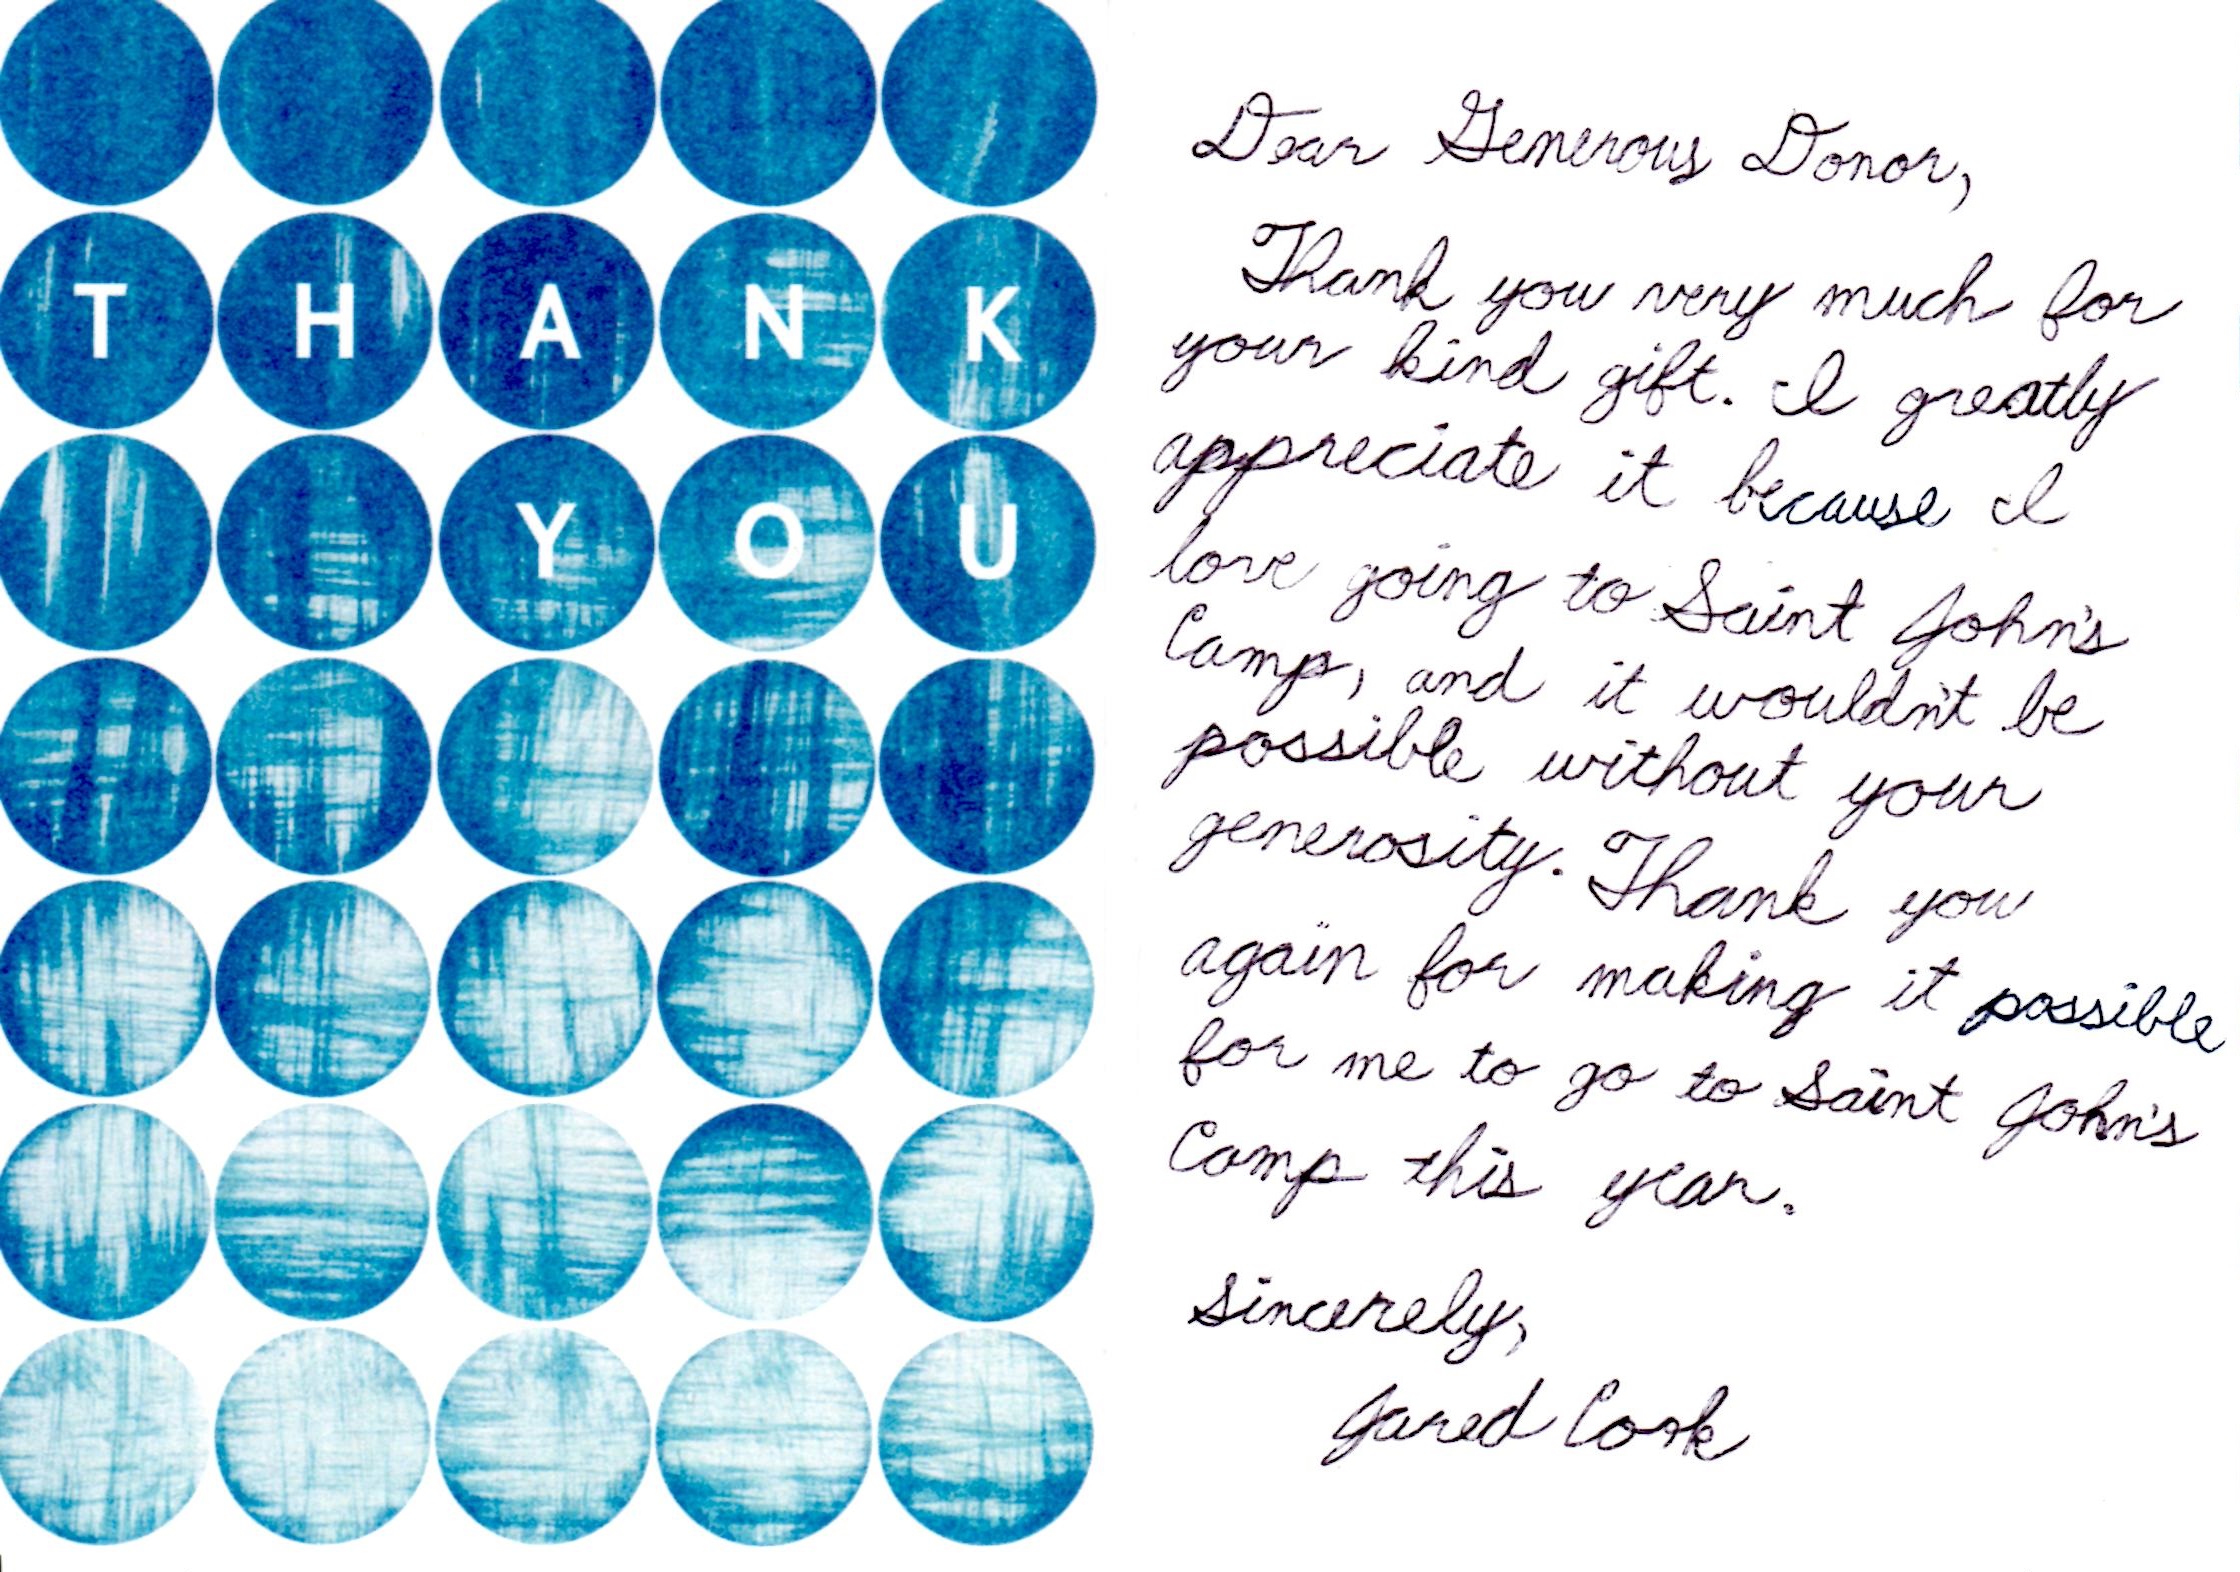 THANK
YOU
Dear Generous Donor,
Thank you very much for
your kind gift. I greatly
appreciate it because I
love going to Saint John's
Camp, and it wouldn't be
possible without your
generosity. Thank you
again for making it possible
for me to go to Saint John's
Camp this year.
Sincerely,
Jared Cook